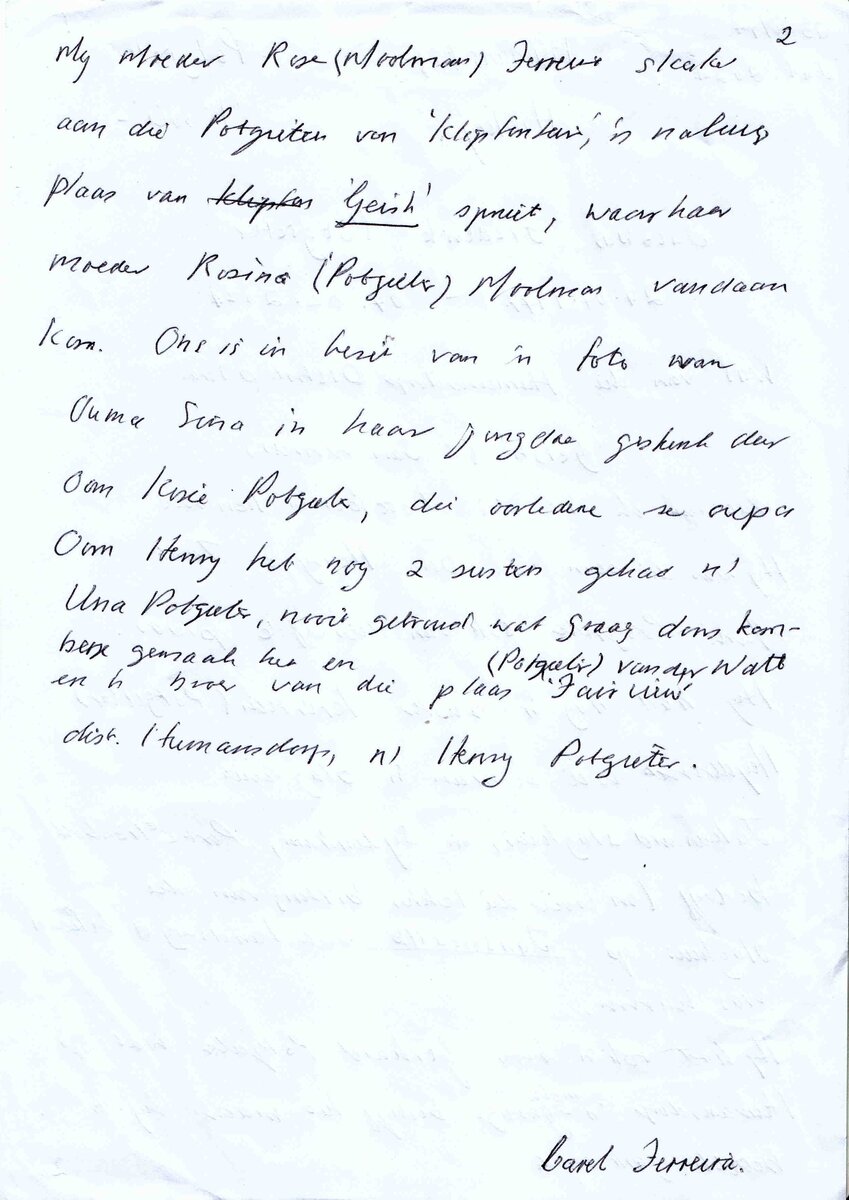 2
My Moeder Rose (Moolman) Ferreira skakel
aan die Potgieters van 'Klipfontein', 'n naburige
plaas van Klipfon 'Geish' spruit, waar haar
moeder Rosina (Potgieter) Moolman vandaan
kom. Ons is in besit van 'n foto van
Ouma Sina in haar jeugdae geskenk deur
Oom Kosie Potgieter, die oorledene se oupa
Oom Henry het nog 2 susters gehad nl
Una Potgieter, nooit getroud wat graag dons kom-
berse gemaak het en (Potgieter) van der Watt
en 'n broer van die plaas 'Fairview'
dist. Humansdorp, nl Henry Potgieter.
Carel Ferreira.